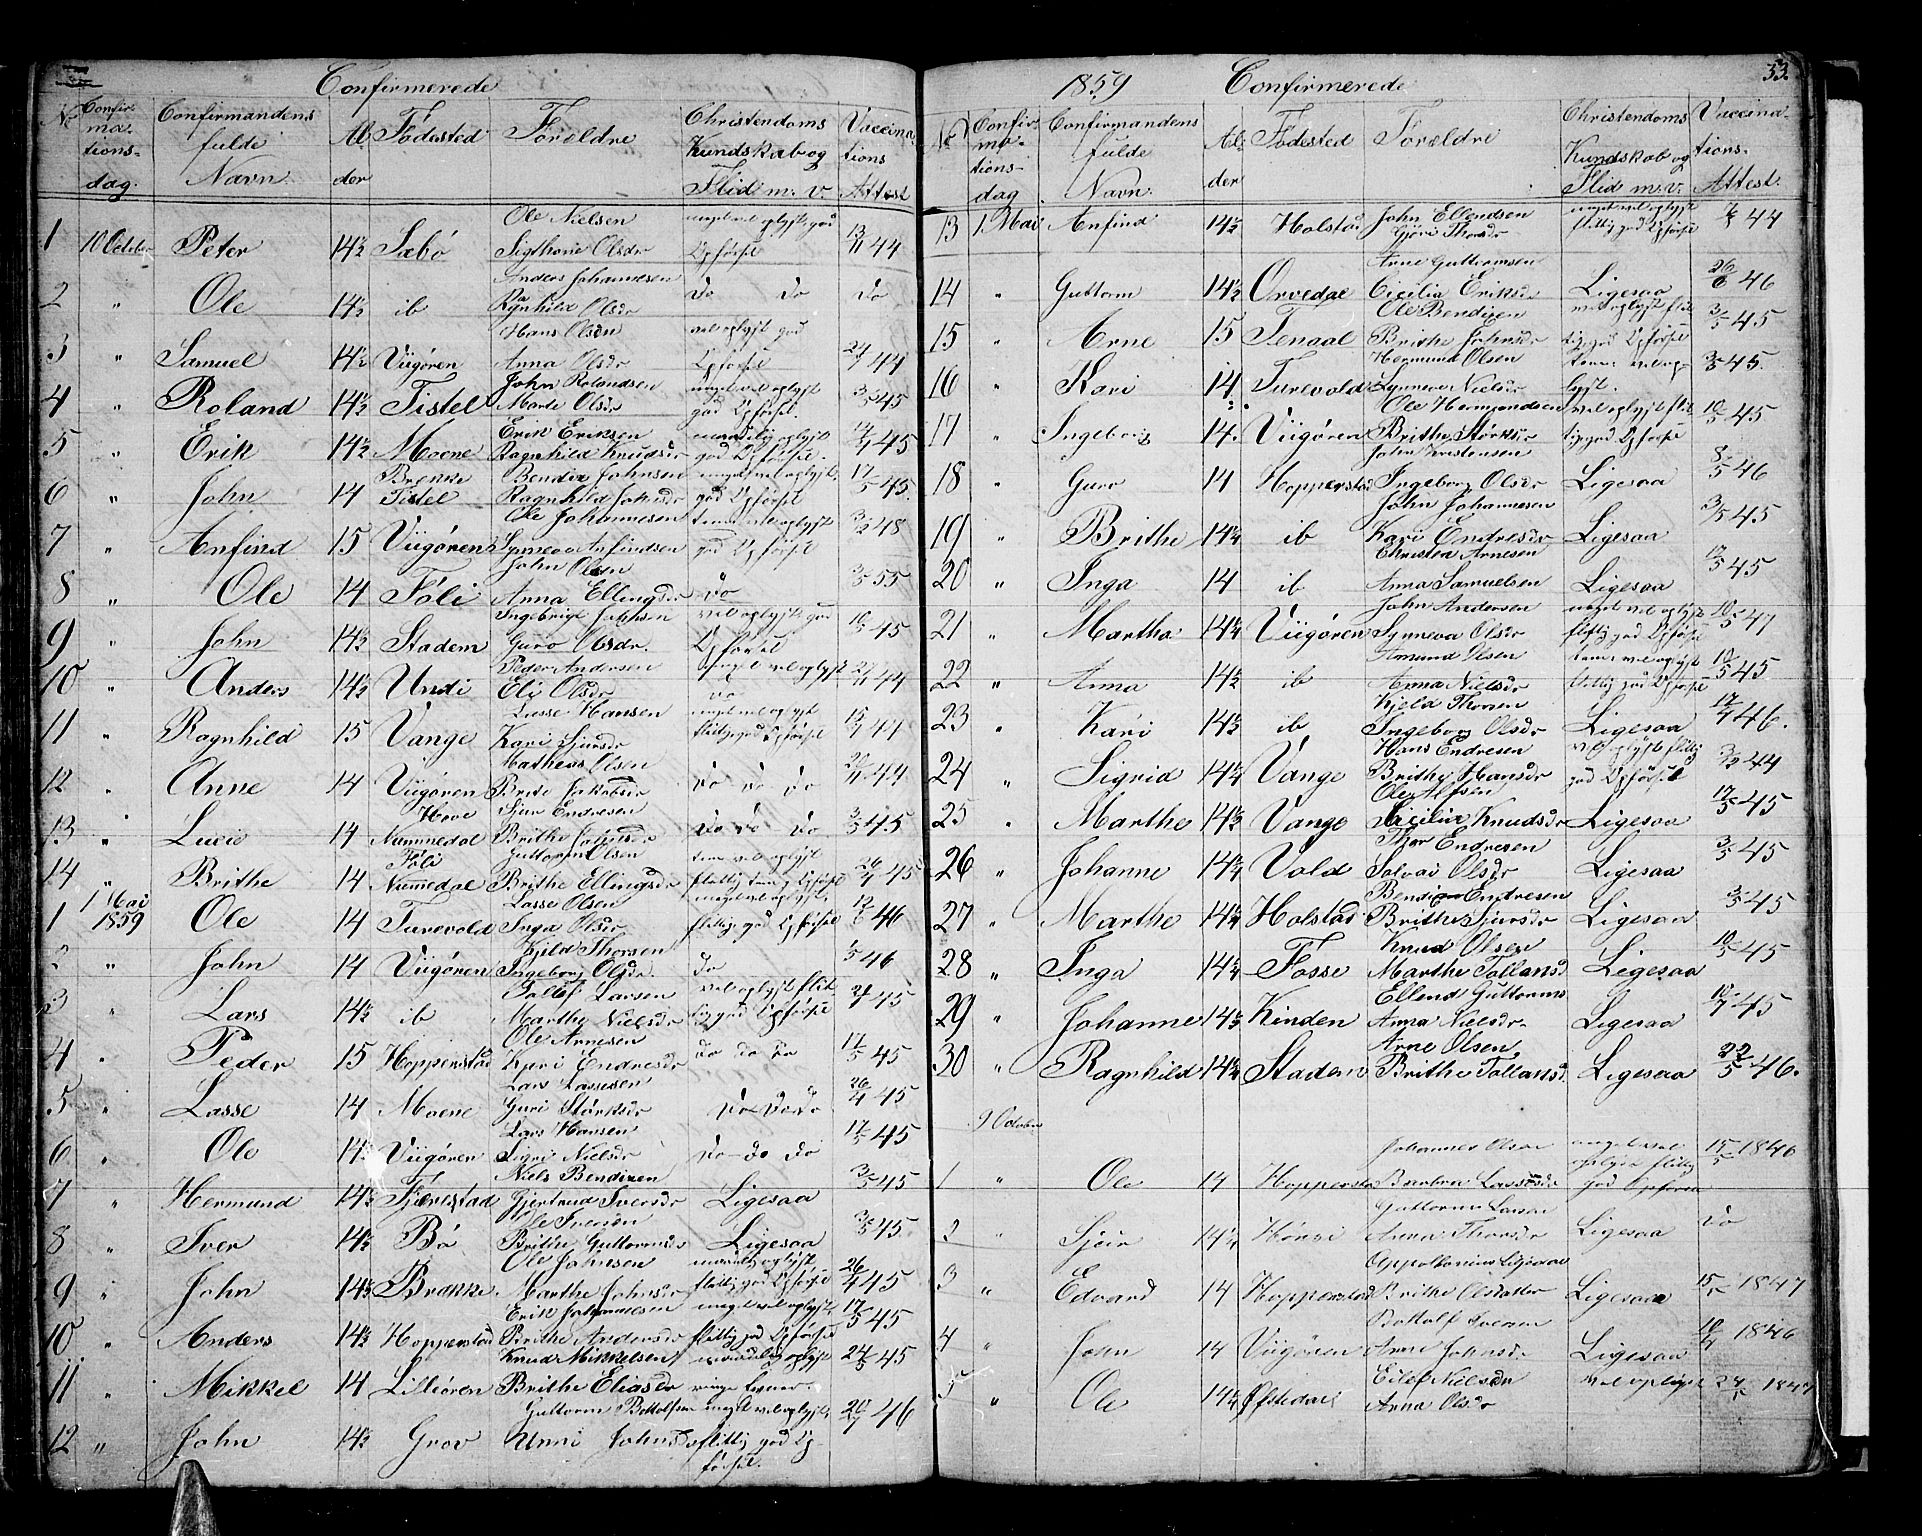 Confirmerede
No Confirmationsdag. Confirmandens fulde Navn. Alder Födested Forældre Christendoms Kundskab og Flid m. v. Vaccinations Attest
1 10 October Peter 14½ Sæbö Ole Nielsen Sigthone Olsdr meget vel oplyst god Opförsel 13/11 44
2 " Ole 14½ ib Anders Johannesen Ragnhild Olsdr Do Do Do
3 " Samuel 14½ Viigören Hans Olsen Anna Olsdr vel oplyst god Opförsel 44
4 " Roland 14½ Tistel John Rolandsen Marte Olsdr meget vel oplyst god Opförsel. 3/5 45
5 " Erik 14½ Moene Erik Eriksen Ragnhild Knudsdr maadelig oplyst god Opförsel. 45
6 " John 14 Brække Tistel Bendix Johnsen Ragnhild Johsdr meget vel oplyst. god Opförsel 17/5 45.
7 " Anfind 15 Viigören Ole Johannesen Synneva Anfindsen tem. vel oplyst god Opförsel 48
8 " Ole 14 Föli John Olsen Anna Ellingsdr Do 3/5 55
9 " John 14½ Stadem Ingebrigt Johnsen Guro Olsdr. vel oplyst god Opförsel 10/5 45
10 " Anders 14½ Undi Peder Andersen Eli Olsdr meget vel oplyst do 44
11 " Ragnhild 15 Vange Lasse Hansen Kari Sjursdr meget vel oplyst flittig god Opförsel 44
12 " Anne 14 Viigören Matheus Olsen Brite Jakobsdr Do Do Do 44
13 " Lucie 14 Hove Nummedal Sjur Endresen Brithe Johnsdr Do Do Do 3/5 45
14 " Brithe 14 Föli Numedal Guttorm Olsen Brithe Ellingsdr tem. vel oplyst flittig Opförsel 26/4 45
1 1 Mai 1859 Ole 14 Turevold Lasse Olsen Inga Olsdr meget vel oplyst flittig god Opförsel 12/6 46
2 " John 14 Viigören Kjeld Thorsen Ingeborg Olsdr. do 46
3 " Lars 14½ ib Tollef Larsen Marthe Nielsdr vel oplyst flittig god Opförsel 45
4 " Peder 15 Hopperstad Ole Arnesen Kari Endresdr Do do Do 17/5 45
5 " Lasse 14 Moene Lars Lassesen Guri Störksdr Do Do Do 26/4 45
6 " Ole 14½ Viigören Lars Hansen Sigri Nielsdr Do do Do 17/5 45
7 " Hermund 14½ Fjærestad Niels Bendixen Gjertrud Iversdr Ligesaa 3/5 45
8 " Iver 14½ Bö Ole Iversen Brithe Guttormsdr Ligesaa 3/5 45.
9 " John 14½ Brække Ole Johnesen Marthe Johnsdr maadelig oplyst flittig god Opförsel 26/4 45
10 " Anders 14½ Hopperstad Erik Johannesen Brithe Andersdr meget vel oplyst flittig god Opförsel 17/5 45
11 " Mikkel 14 Lilliören Knud Mikkelsen Brithe Eliasdr maadelig oplyst ringe Evner. 24/5 45
12 " John 14½ Grov Guttorm Bottolfsen Unni Johnsd meget vel oplyst, flittig god Opförsel. 20/7 46
1859 Confirmerede 33.
No Confirmationsdag Confirmandens fulde Navn. Alder Födested Forældre Christendoms Kundskab og Flid m. v. Vaccinations Attest.
13 1 Mai Anfind 14½ Holstad John Ellendsen Gjöri Thorsdr meget vel oplyst flittig god Opförsel 44
14 " Guttorm 14½ Orvedal Arne Guttormsen Cicilia Eriksdr Ligesaa 26/6 46
15 " Arne 15 Tenaal Ole Bendixen Brithe Johnsdr vel oplyst flittig god Opförsel 3/5 45
16 " Kari 14 Turevold Hermund Olsen Synneva Nielsdr tem. vel oplyst. 3/5 45.
17 " Ingeborg 14. Viigören Ole Hermundsen Brithe Störksdr vel oplyst flittig god Opförsel 10/5 45
18 " Guro 14 Hopperstad John Kristensen Ingeborg Olsdr Ligesaa 8/5 46
19 " Brithe 14¼ ib John Johannesen Kari Endresdr Ligesaa 3/5 45
20 " Inga 14 ib Christen Arnesen Anna Samuelsen Ligesaa 17/5 45
21 " Martha 14¼ Viigören John Andersen Synneva Olsdr meget vel oplyst flittig god Opförsel 10/5 47
22 " Anna 14½ ib Amund Olsen Anna Nielsdr tem. vel oplyst flittig god Opförsel 10/5 45
23 " Kari 14½ ib Kjeld Thorsen Ingeborg Olsdr Ligesaa 46.
24 " Sigrid 14¼ Vange Hans Endresen Brithe Hansdr vel oplyst flittig god Opförsel 44
25 " Marthe 14½ Vange Ole Olsen Sicilia Knudsdr Ligesaa 17/5 45
26 " Johanne 14¼ Vold Thor Endresen Solvai Olsdr Ligesaa 3/5 45
27 " Marthe 14¼ Holstad Bendix Endresen Brithe Sjursdr Ligesaa 3/5 45
28 " Inga 14¼ Fosse Knud Olsen Marthe Tollansd Ligesaa 10/5 45
29 " Johanne 14½ Kinden Ellend Guttorms Anna Nielsdr. Ligesaa 45
30 " Ragnhild 14¼ Stadem Arne Olsen, Brithe Tollansd. Ligesaa 22/5 46.
9 October
1 " Ole 14 Hopperstad Johannes Olsen Barbra Lassesdr meget vel oplyst flittig god Opförsel 15/5 1846
2 " Sjur 14¼ Hönsi Guttorm Larsen Anna Thorsdr Ligesaa Do
3 " Edvard 14 Hopperstad Brithe Olsdatter Ligesaa 1847
4 " John 14 Viigören Bottolf Iversen Anne Johnsdr Ligesaa 1846
5 " Ole 14¼ Östedal Eilef Nielsen Anna Olsdr vel oplyst 1847